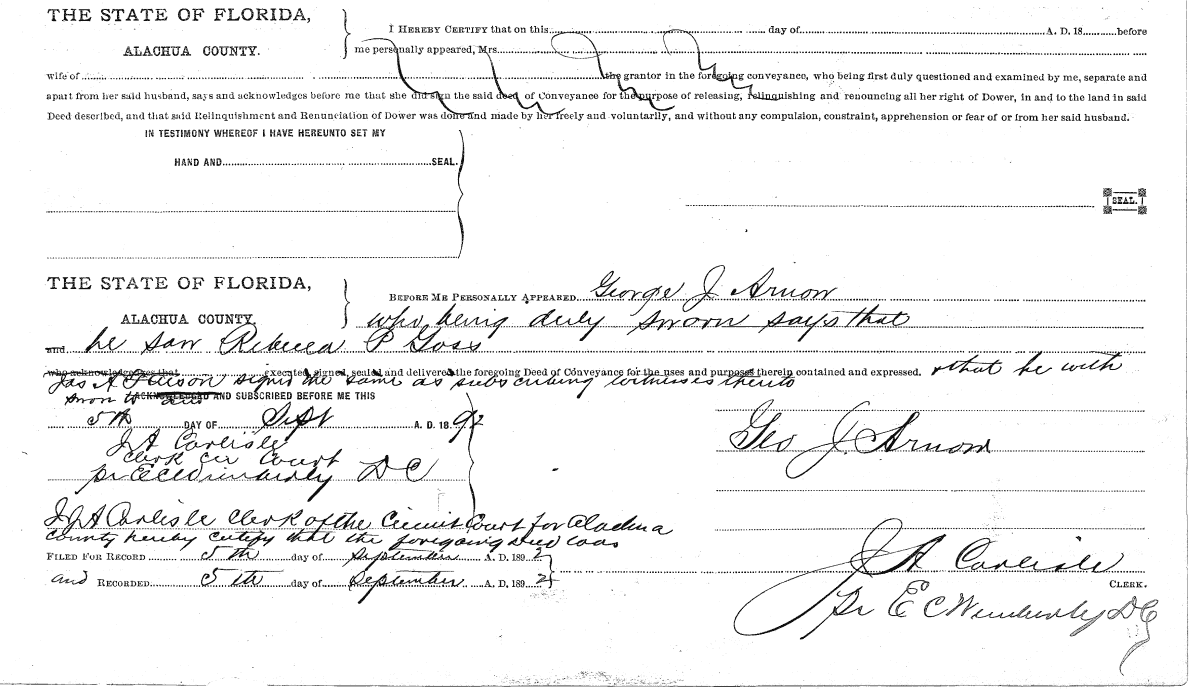 THE STATE OF FLORIDA,
ALACHUA COUNTY.
I HEREBY CERTIFY that on this day of A. D. 18 before
me personally appeared, Mrs.
wife of the grantor in the foregoing conveyance, who being first duly questioned and examined by me, separate and
apart from her said husband, says and acknowledges before me that she did sign the said deed of Conveyance for the purpose of releasing, relinquishing and renouncing all her right of Dower, in and to the land in said
Deed described, and that said Relinquishment and Renunciation of Dower was done and made by her freely and voluntarily, and without any compulsion, constraint, apprehension or fear of or from her said husband.
IN TESTIMONY WHEREOF I HAVE HEREUNTO SET MY
HAND AND SEAL.
SEAL.
THE STATE OF FLORIDA,
ALACHUA COUNTY,
BEFORE ME PERSONALLY APPEARED George J Arnow
who being duly sworn says that
and he saw Rebecca P Goss
who acknowledges that executed, signed, sealed and delivered the foregoing Deed of Conveyance for the uses and purposes therein contained and expressed. & that he with
Jas A signed the same as subscribing witnesses thereto
sworn to and ACKNOWLEDGED AND SUBSCRIBED BEFORE ME THIS
5th DAY OF Sept A. D. 18 92
J A Carlisle
Clerk Cir Court
pr E C Wimberly D C
Geo J. Arnow
I J A Carlisle Clerk of the Circuit Court for Alachua
County hereby certify that the foregoing deed was
FILED FOR RECORD 5th day of September A. D. 189 2
and RECORDED 5th day of September A. D. 189 2
J A Carlisle
CLERK.
pr E C Wimberly D C